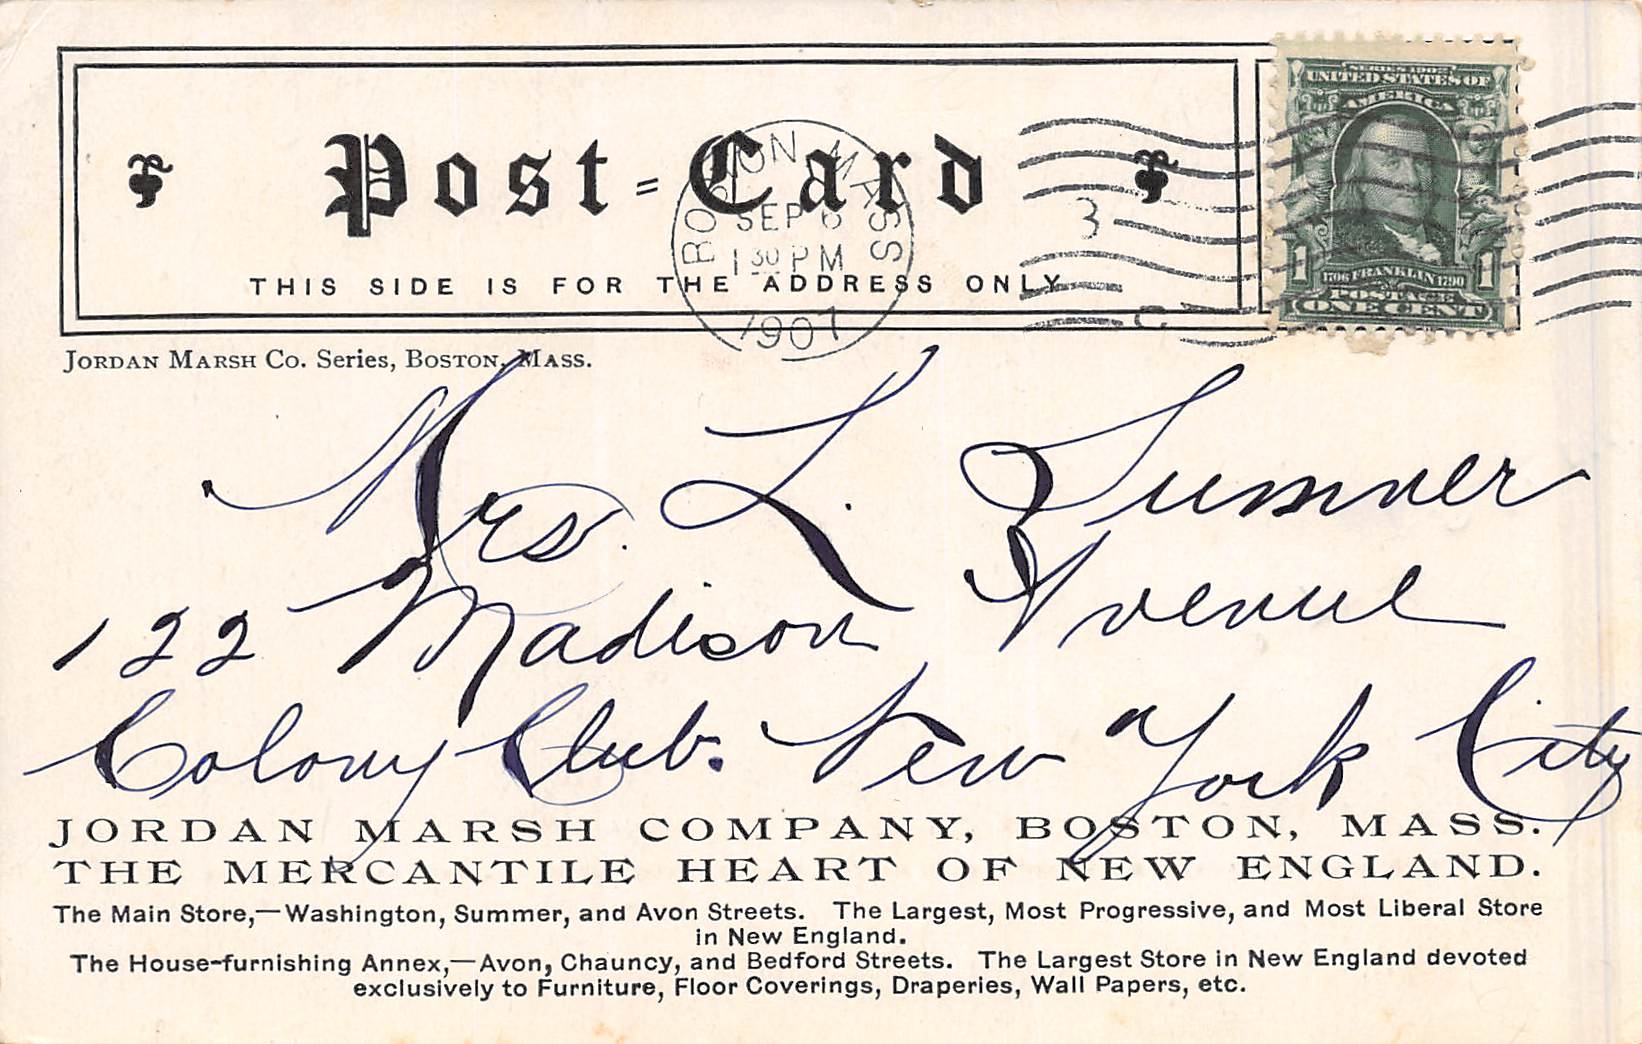 Post-Card
THIS SIDE IS FOR THE ADDRESS ONLY
BOSTON MASS
SEP 6
1 30 PM
1907
3
C
SERIES 1902
UNITED STATES OF
AMERICA
1706 FRANKLIN 1790
1 1
POSTAGE
ONE CENT
JORDAN MARSH CO. Series, BOSTON, MASS.
Mrs. L. Sumner
122 Madison Avenue
Colony Club. New York City
JORDAN MARSH COMPANY, BOSTON, MASS.
THE MERCANTILE HEART OF NEW ENGLAND.
The Main Store,—Washington, Summer, and Avon Streets. The Largest, Most Progressive, and Most Liberal Store
in New England.
The House-furnishing Annex,—Avon, Chauncy, and Bedford Streets. The Largest Store in New England devoted
exclusively to Furniture, Floor Coverings, Draperies, Wall Papers, etc.